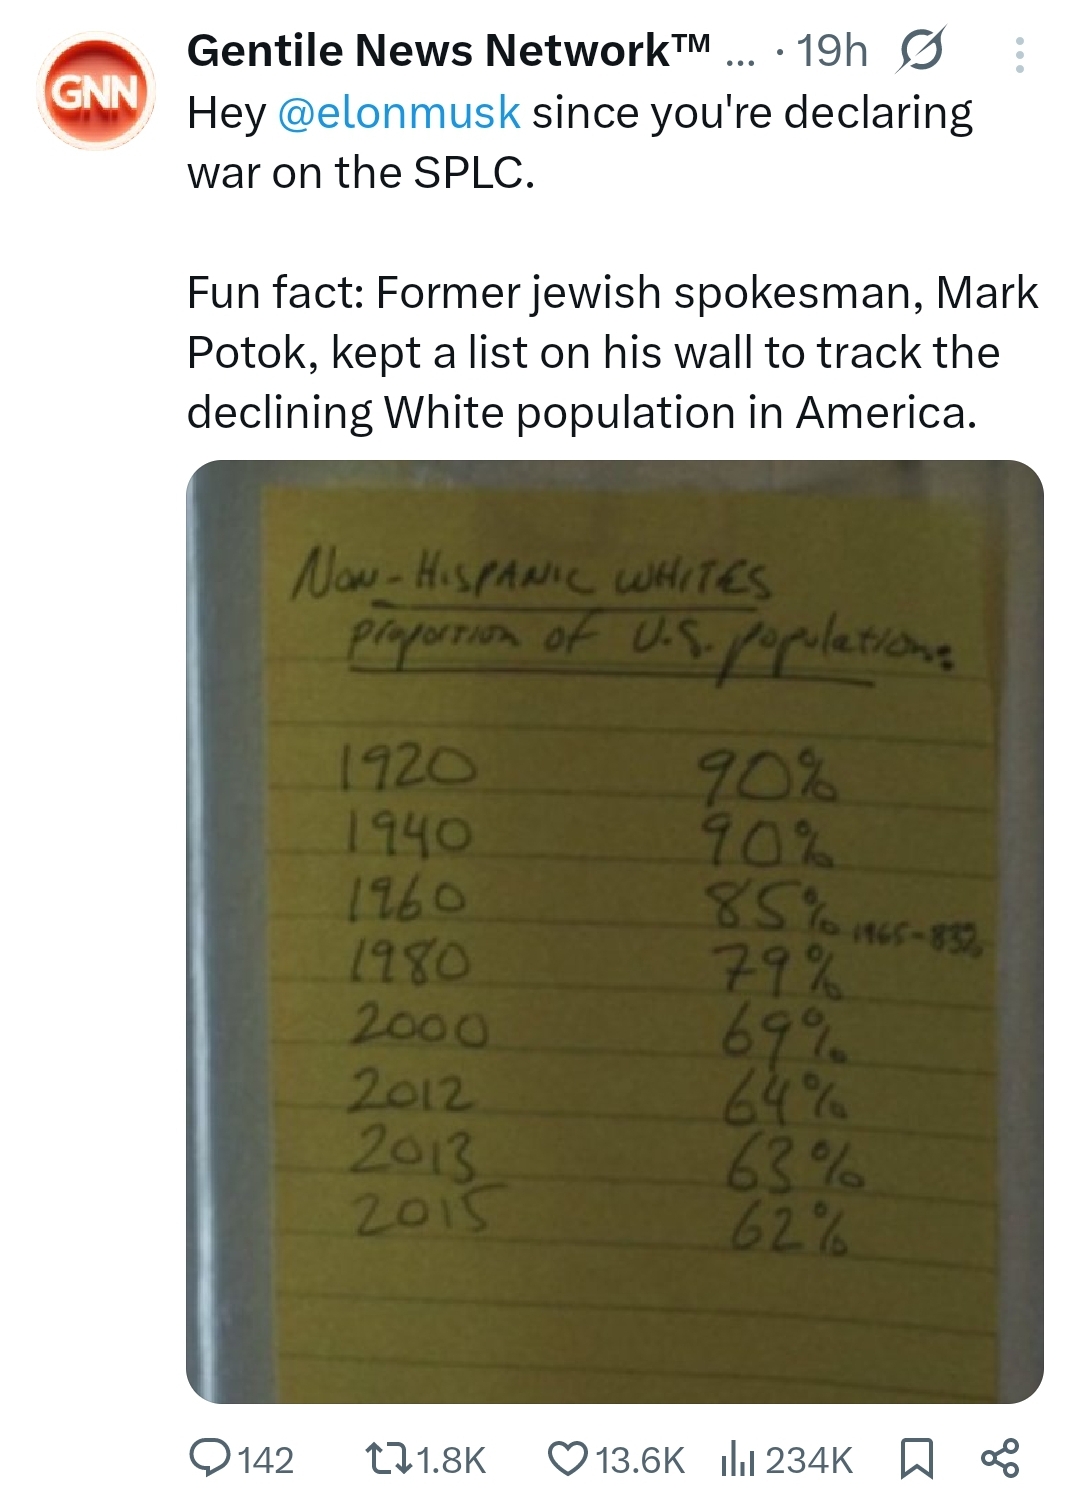 GNN
Gentile News Network™ ... · 19h
Hey @elonmusk since you're declaring
war on the SPLC.
Fun fact: Former jewish spokesman, Mark
Potok, kept a list on his wall to track the
declining White population in America.
Non-Hispanic Whites
proportion of U.S. population:
1920 90%
1940 90%
1960 85% 1965-83%
1980 79%
2000 69%
2012 64%
2013 63%
2015 62%
142 1.8K 13.6K 234K